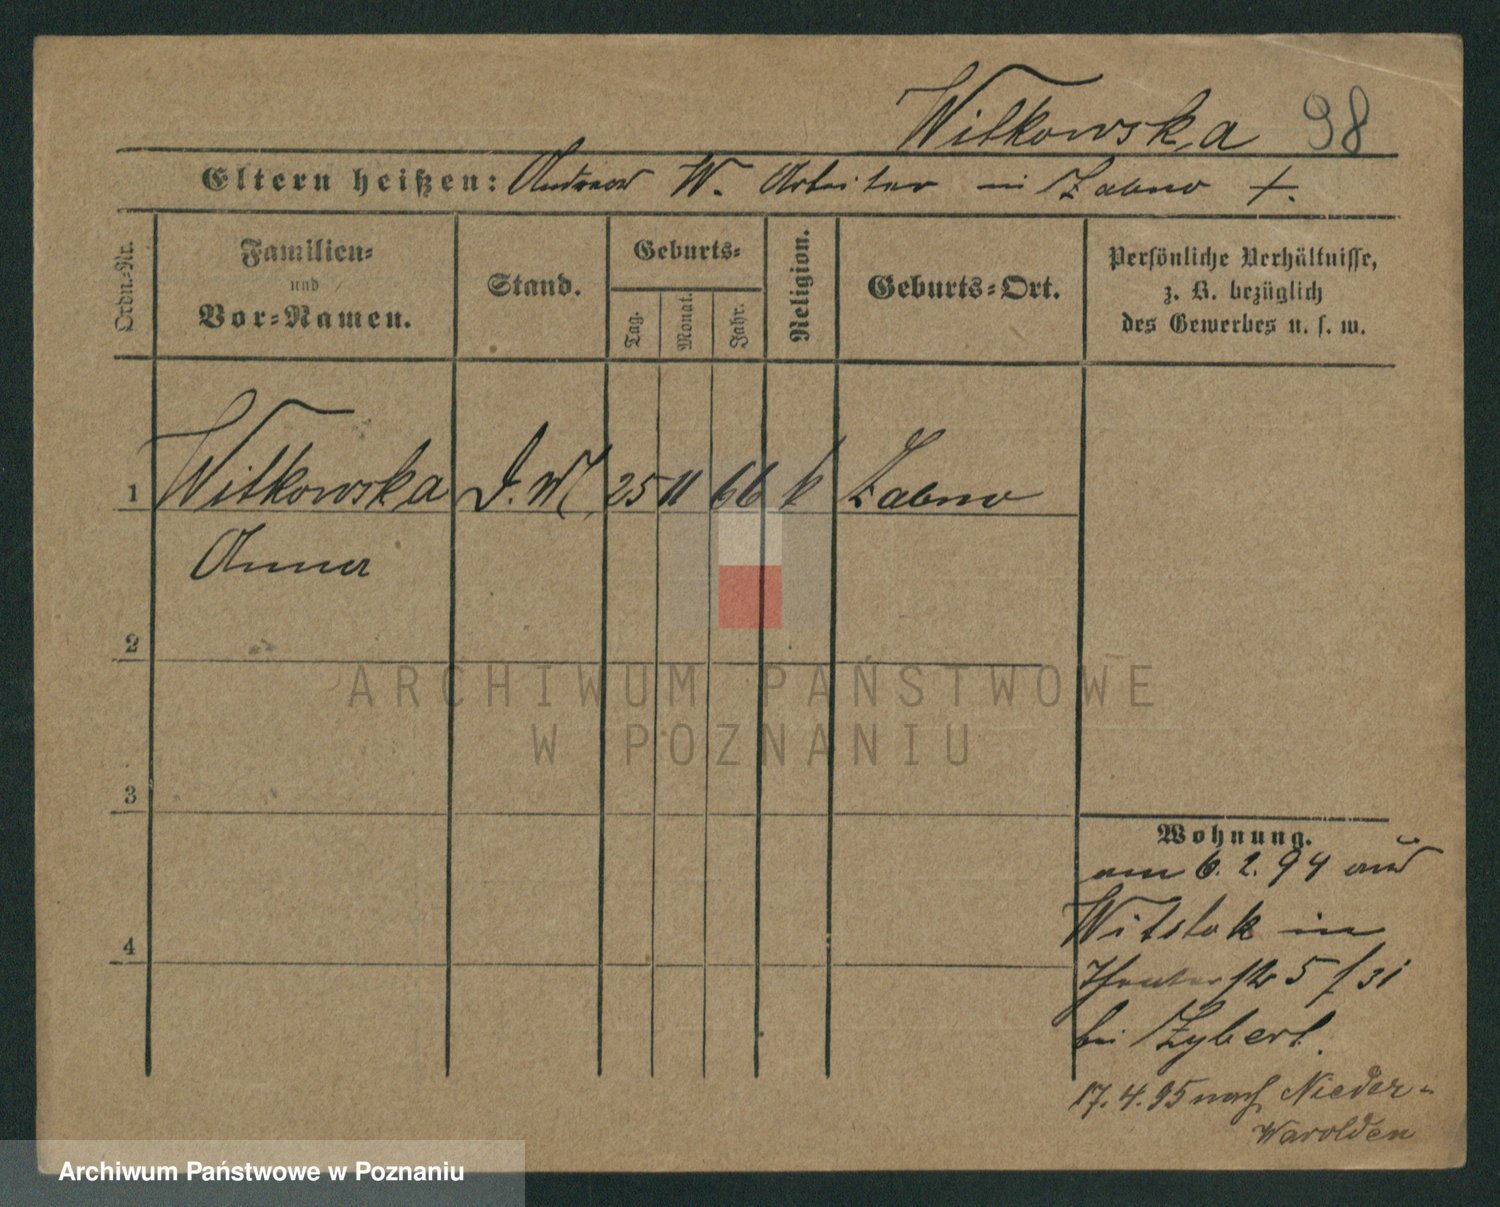 Witkowska 98
Eltern heißen: Andreas W. Arbeiter in Zabno +.
Ordn.-Nr.
Familien-
und
Vor-Namen.
Stand.
Geburts-
Tag.
Monat.
Jahr.
Religion.
Geburts-Ort.
Persönliche Verhältnisse,
z. B. bezüglich
des Gewerbes u. s. w.
1 Witkowska D. M. 25 11 66 k Zabno
Anna
2
ARCHIWUM PAŃSTWOWE
W POZNANIU
3
Wohnung.
am 6. 2. 94 aus
Witstok in
4
Theaterstr 5 / 31
bei Zybert.
17. 4. 95 nach Nieder-
Warolden
Archiwum Państwowe w Poznaniu